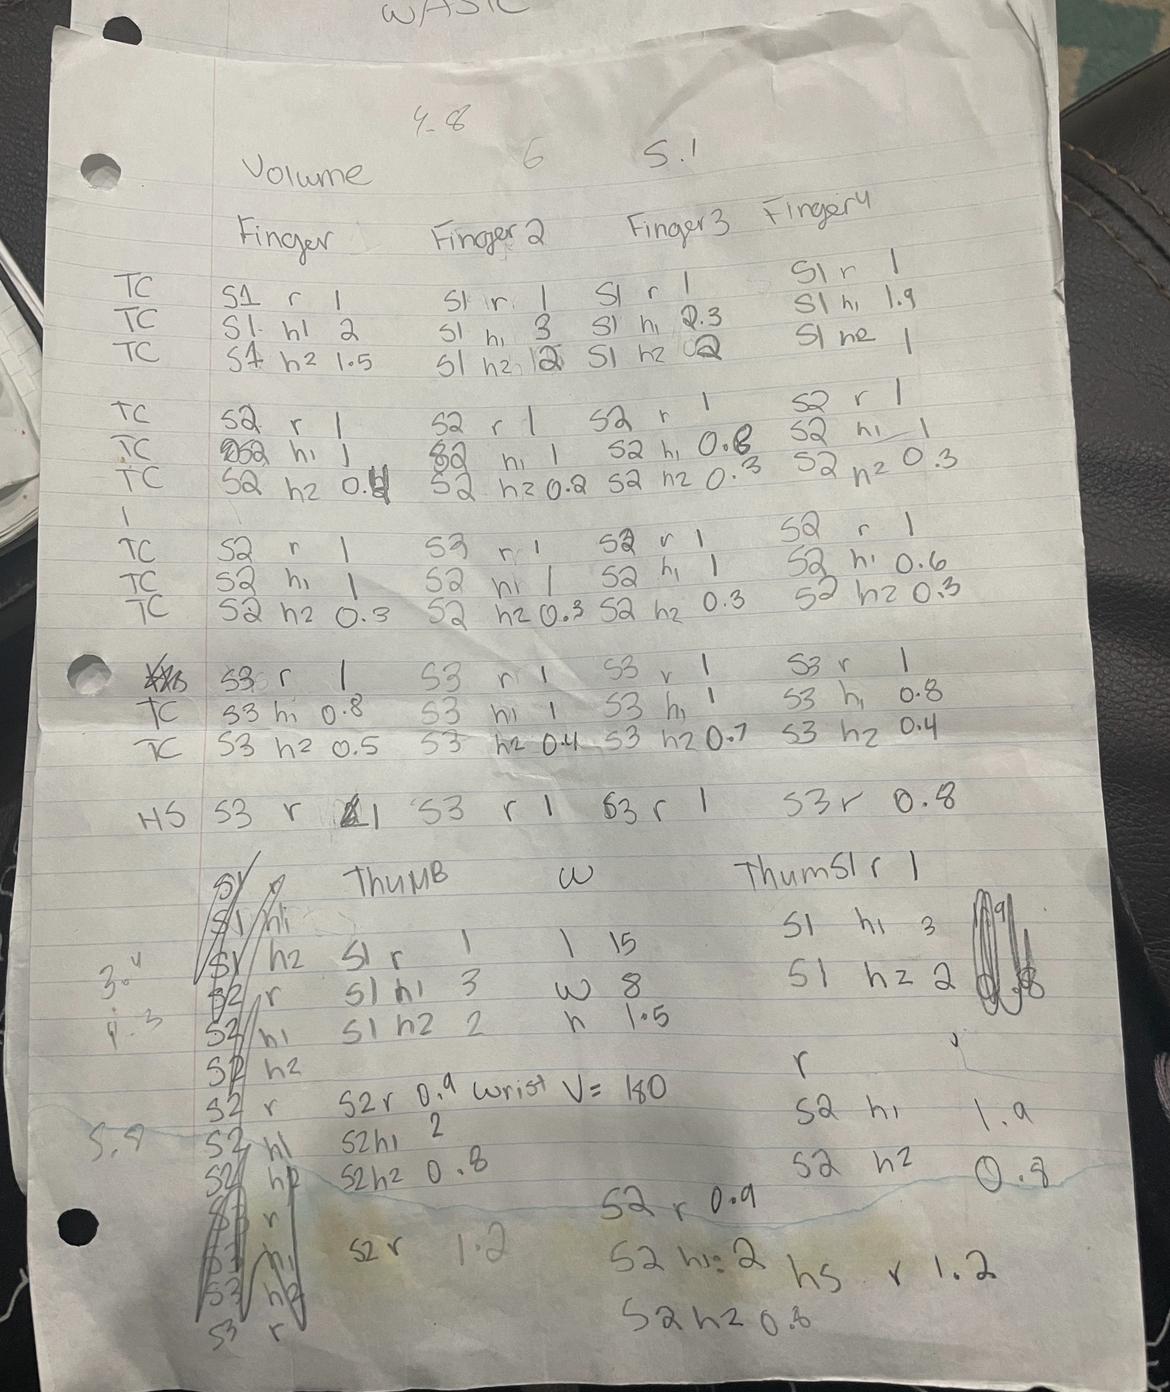 WASTC
4.8
6 5.1
Volume
Finger Finger 2 Finger 3 Finger 4
TC S1 r 1 S1 r 1 S1 r 1 S1 r 1
TC S1 h1 2 S1 h1 3 S1 h1 2.3 S1 h1 1.9
TC S1 h2 1.5 S1 h2 2 S1 h2 2 S1 h2 1
TC S2 r 1 S2 r 1 S2 r 1 S2 r 1
TC S2 h1 1 S2 h1 1 S2 h1 0.8 S2 h1 1
TC S2 h2 0.4 S2 h2 0.2 S2 h2 0.3 S2 h2 0.3
1
TC S2 r 1 S3 r 1 S2 r 1 S2 r 1
TC S2 h1 1 S2 h1 1 S2 h1 1 S2 h1 0.6
TC S2 h2 0.3 S2 h2 0.3 S2 h2 0.3 S2 h2 0.3
S3 r 1 S3 r 1 S3 r 1 S3 r 1
TC S3 h1 0.8 S3 h1 1 S3 h1 1 S3 h1 0.8
TC S3 h2 0.5 S3 h2 0.4 S3 h2 0.7 S3 h2 0.4
HS S3 r 1 S3 r 1 S3 r 1 S3 r 0.8
S1 r ThuMB W Thum S1 r 1
S1 h1 S1 h1 3
S1 h2 S1 r 1 l 15
S2 r S1 h1 3 W 8 S1 h2 2
S2 h1 S1 h2 2 h 1.5
S2 h2 r
S2 r S2 r 0.9 wrist V= 180
S2 h1 S2 h1 2 S2 h1 1.9
S2 h2 S2 h2 0.8 S2 h2 0.8
S3 r S2 r 0.9
h1 S2 r 1.2 S2 h1: 2 hs r 1.2
S2 h2 S2 h2 0.8
S3 r